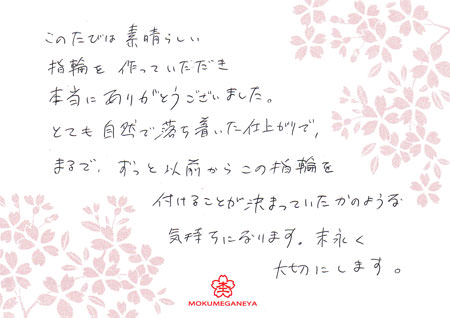 このたびは 素晴らしい
指輪を 作っていただき
本当に ありがとうございました。
とても 自然で 落ち着いた 仕上がりで、
まるで、ずっと 以前から この指輪を
付けることが 決まっていたかのような
気持ちになります。末永く
大切にします。
MOKUMEGANEYA